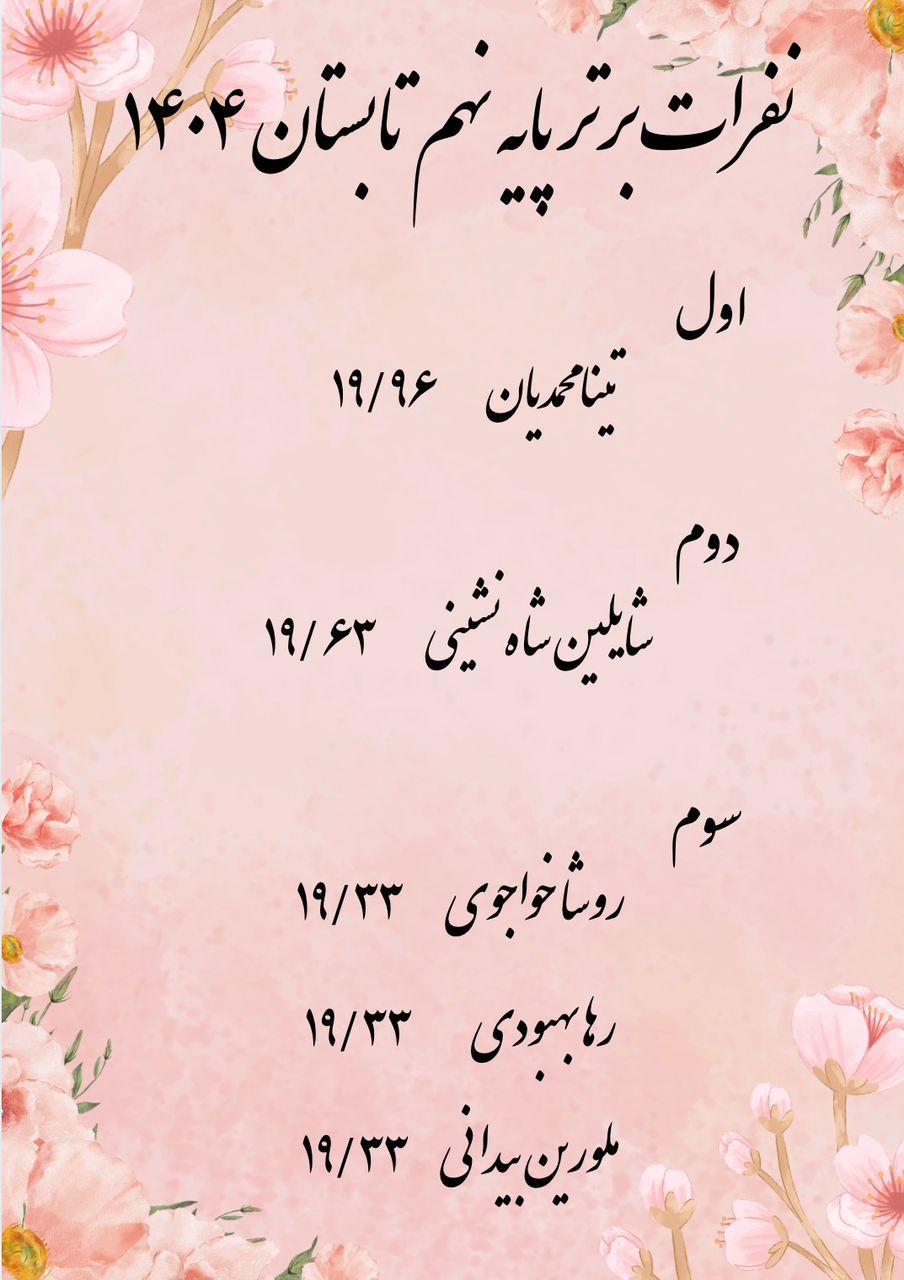 نفرات برتر پایه نهم تابستان ۱۴۰۴
اول
تینا محمدیان ۱۹/۹۶
دوم
شایلین شاه نشینی ۱۹/۶۳
سوم
روشا خواجوی ۱۹/۳۳
رها بهبودی ۱۹/۳۳
ملورین بیدانی ۱۹/۳۳